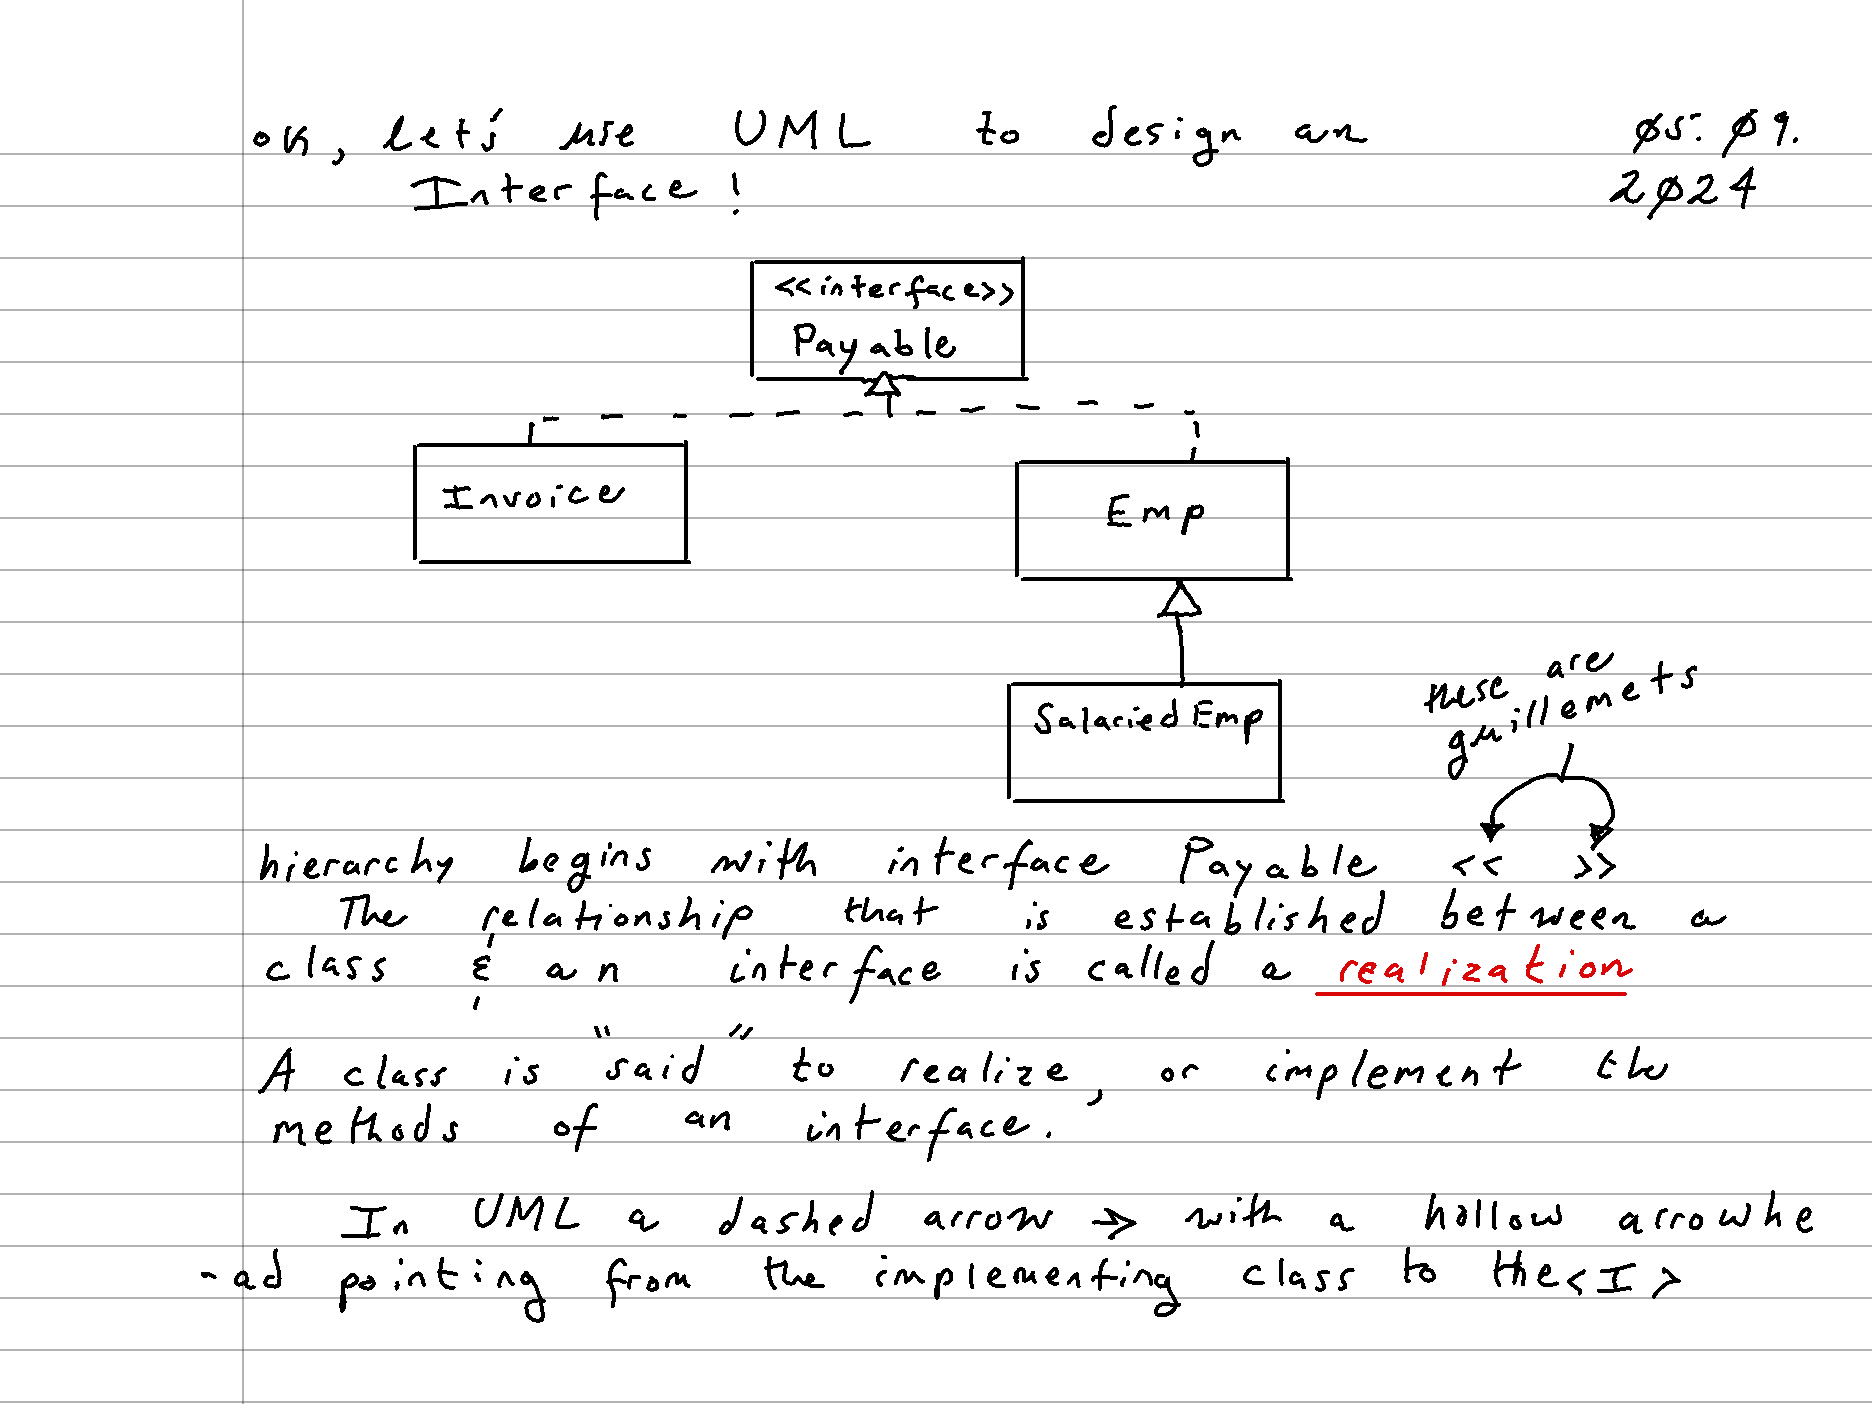 ok, let's use UML to design an
Interface!
05.09.
2024
<<interface>>
Payable
Invoice
Emp
Salaried Emp
these are
guillemets
hierarchy begins with interface Payable << >>
The relationship that is established between a
class & an interface is called a realization
A class is "said" to realize, or implement the
methods of an interface.
In UML a dashed arrow → with a hollow arrowhe
-ad pointing from the implementing class to the <I>